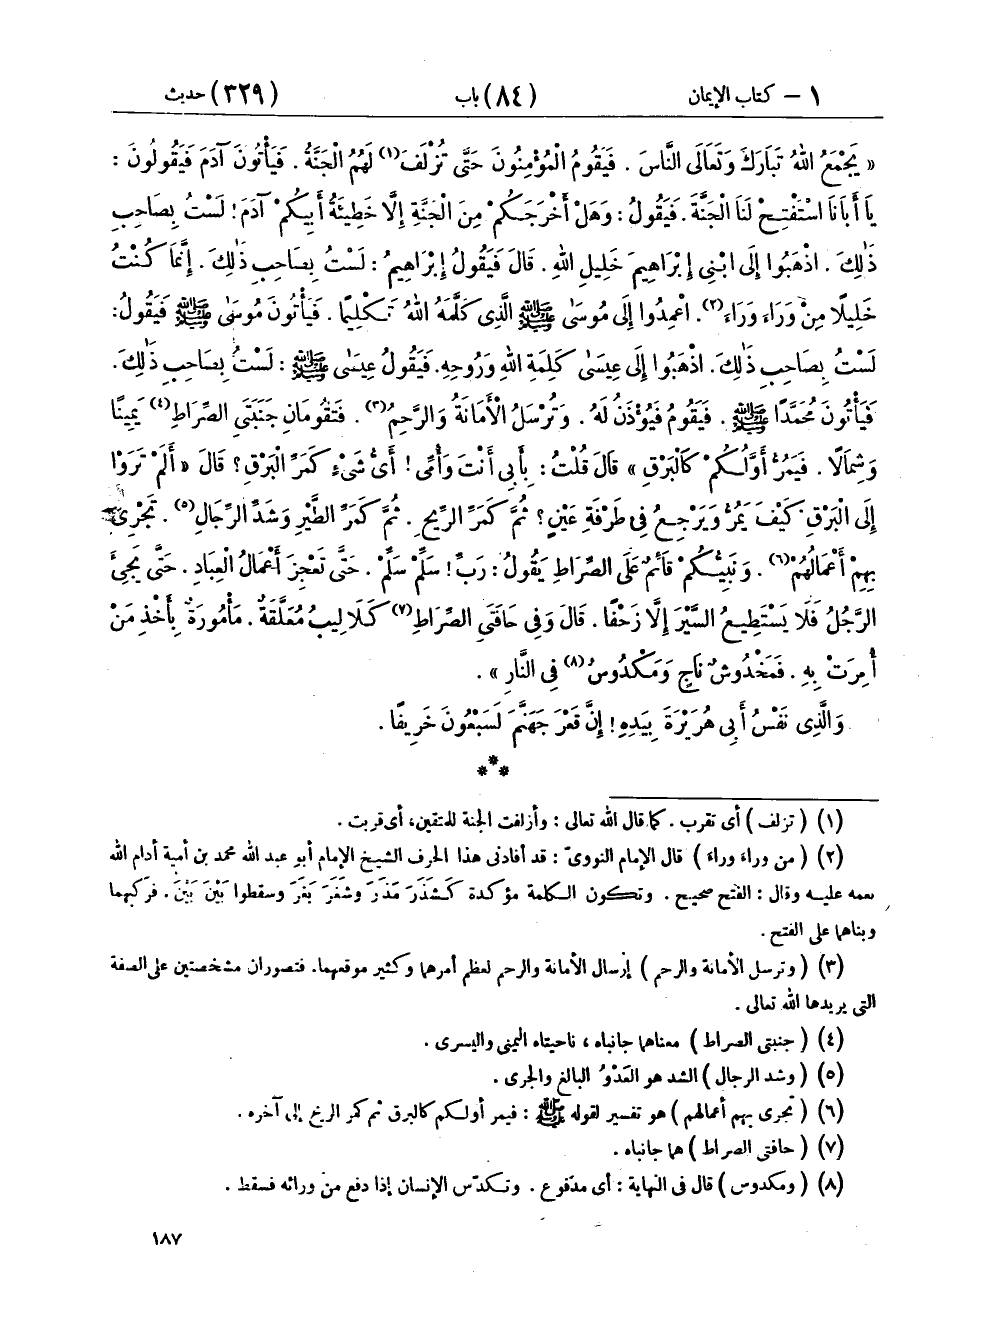 ١ – كتاب الإيمان (٨٤) باب (٣٢٩) حديث
« يَجْمَعُ اللهُ تَبَارَكَ وَتَعَالَى النَّاسَ . فَيَقُومُ الْمُؤْمِنُونَ حَتَّى تُزْلَفَ(١) لَهُمُ الْجَنَّةُ . فَيَأْتُونَ آدَمَ فَيَقُولُونَ :
يَا أَبَانَا اسْتَفْتِحْ لَنَا الْجَنَّةَ . فَيَقُولُ : وَهَلْ أَخْرَجَكُمْ مِنَ الْجَنَّةِ إِلَّا خَطِيئَةُ أَبِيكُمْ آدَمَ! لَسْتُ بِصَاحِبِ
ذَٰلِكَ . اذْهَبُوا إِلَى ابْنِي إِبْرَاهِيمَ خَلِيلِ اللهِ . قَالَ فَيَقُولُ إِبْرَاهِيمُ : لَسْتُ بِصَاحِبِ ذَٰلِكَ . إِنَّمَا كُنْتُ
خَلِيلًا مِنْ وَرَاءَ وَرَاءَ(٢). اعْمِدُوا إِلَى مُوسَىٰ ﷺ الَّذِى كَلَّمَهُ اللهُ تَكْلِيمًا . فَيَأْتُونَ مُوسَىٰ ﷺ فَيَقُولُ:
لَسْتُ بِصَاحِبِ ذَٰلِكَ. اذْهَبُوا إِلَى عِيسَىٰ كَلِمَةِ اللهِ وَرُوحِهِ. فَيَقُولُ عِيسَىٰ ﷺ : لَسْتُ بِصَاحِبِ ذَٰلِكَ.
فَيَأْتُونَ مُحَمَّدًا ﷺ . فَيَقُومُ فَيُؤْذَنُ لَهُ . وَتُرْسَلُ الْأَمَانَةُ وَالرَّحِمُ(٣) . فَتَقُومَانِ جَنَبَتَىِ الصِّرَاطِ(٤) يَمِينًا
وَشِمَالًا . فَيَمُرُّ أَوَّلُكُمْ كَالْبَرْقِ » قَالَ قُلْتُ : بِأَبِى أَنْتَ وَأُمِّى! أَىُّ شَىْءٍ كَمَرِّ الْبَرْقِ؟ قَالَ « أَلَمْ تَرَوْا
إِلَى الْبَرْقِ كَيْفَ يَمُرُّ وَيَرْجِعُ فِى طَرْفَةِ عَيْنٍ؟ ثُمَّ كَمَرِّ الرِّيحِ . ثُمَّ كَمَرِّ الطَّيْرِ وَشَدِّ الرِّجَالِ(٥) . تَجْرِى
بِهِمْ أَعْمَالُهُمْ(٦) . وَنَبِيُّكُمْ قَائِمٌ عَلَى الصِّرَاطِ يَقُولُ : رَبِّ! سَلِّمْ سَلِّمْ . حَتَّى تَعْجِزَ أَعْمَالُ الْعِبَادِ . حَتَّى يَجِىءَ
الرَّجُلُ فَلَا يَسْتَطِيعُ السَّيْرَ إِلَّا زَحْفًا . قَالَ وَفِى حَافَتَىِ الصِّرَاطِ(٧) كَلَالِيبُ مُعَلَّقَةٌ . مَأْمُورَةٌ بِأَخْذِ مَنْ
أُمِرَتْ بِهِ . فَمَخْدُوشٌ نَاجٍ وَمَكْدُوسٌ(٨) فِى النَّارِ » .
وَالَّذِى نَفْسُ أَبِى هُرَيْرَةَ بِيَدِهِ! إِنَّ قَعْرَ جَهَنَّمَ لَسَبْعُونَ خَرِيفًا .
***
(١) ( تزلف ) أى تقرب . كما قال الله تعالى : وأزلفت الجنة للمتقين، أى قربت .
(٢) ( من وراء وراء ) قال الإمام النووىّ : قد أفادنى هذا الحرف الشيخ الإمام أبو عبد الله محمد بن أمية أدام الله
نعمه عليه وقال : الفتح صحيح . وتكون الكلمة مؤكدة كَشَذَرَ مَذَرَ وشَغَرَ بَغَرَ وسقطوا بَيْنَ بَيْنَ . فركبهما
وبناهما على الفتح .
(٣) ( وترسل الأمانة والرحم ) إرسال الأمانة والرحم لعظم أمرهما وكثير موقعهما. فتصوران مشخصتين على الصفة
التى يريدها الله تعالى .
(٤) ( جنبتى الصراط ) معناهما جانباه ، ناحيتاه اليمنى واليسرى .
(٥) ( وشد الرجال ) الشد هو العَدْوُ البالغ والجرى .
(٦) ( تجرى بهم أعمالهم ) هو تفسير لقوله ﷺ : فيمر أولكم كالبرق ثم كمر الريح إلى آخره .
(٧) ( حافتى الصراط ) هما جانباه .
(٨) ( ومكدوس ) قال فى النهاية : أى مدفوع . وتكدّس الإنسان إذا دفع من ورائه فسقط .
١٨٧